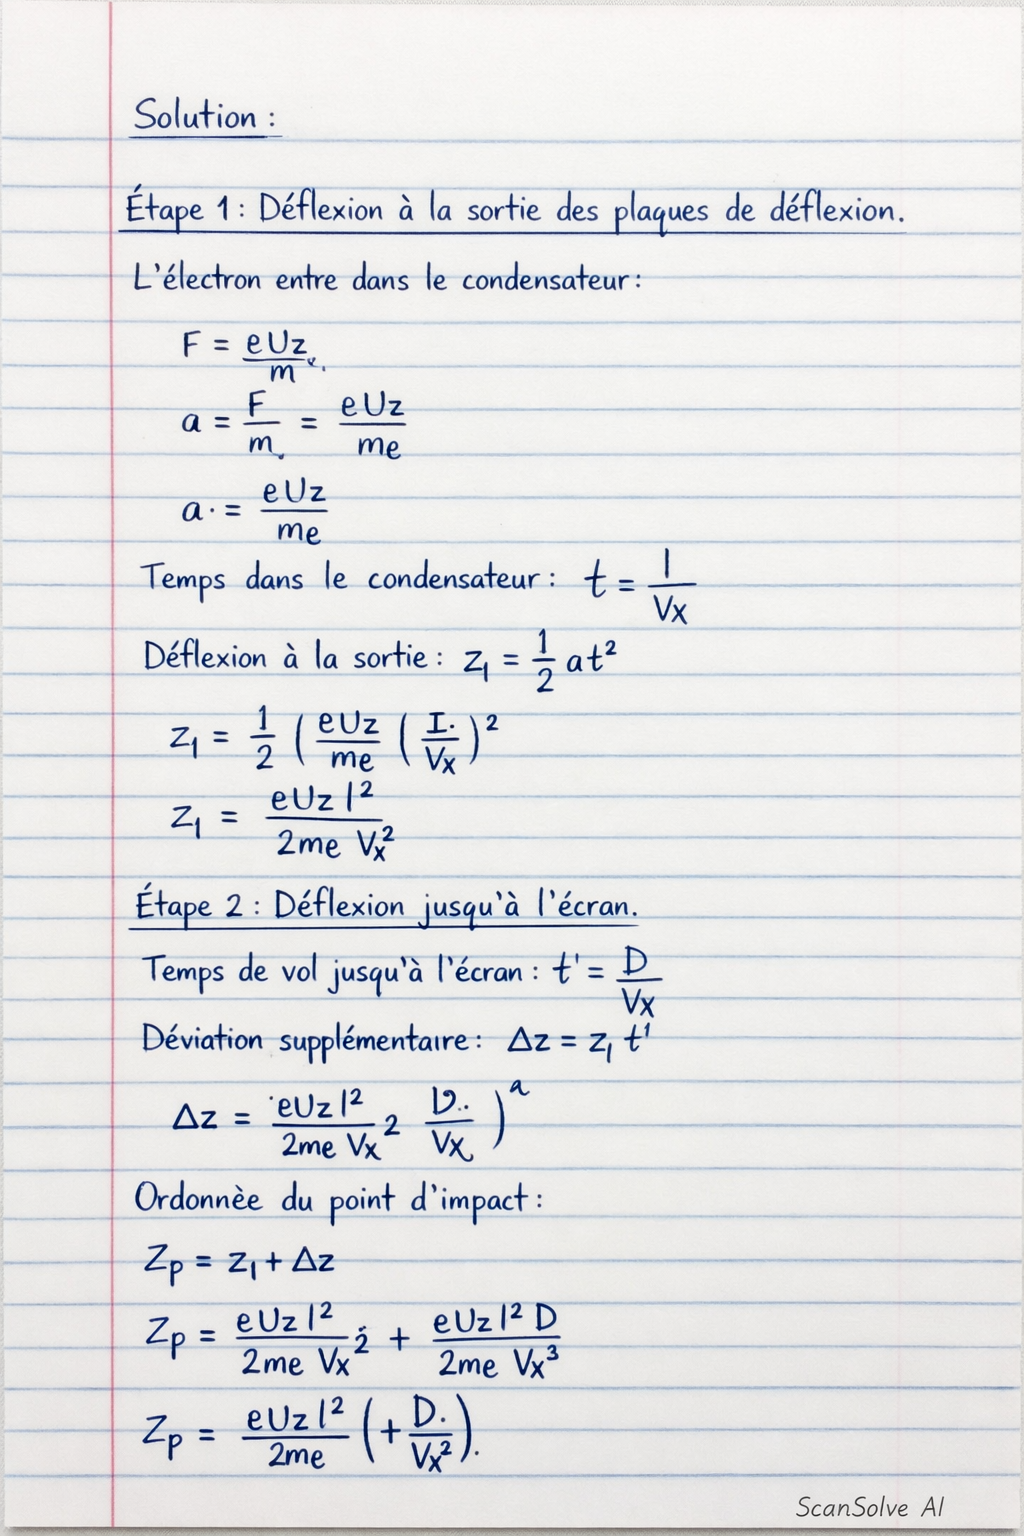 Solution :
Étape 1 : Déflexion à la sortie des plaques de déflexion.
L'électron entre dans le condensateur :
F = eUz / m
a = F / m = eUz / me
a · = eUz / me
Temps dans le condensateur : t = l / Vx
Déflexion à la sortie : z₁ = 1/2 at²
z₁ = 1/2 ( eUz / me ( I. / Vx )²
z₁ = eUz l² / 2me Vx²
Étape 2 : Déflexion jusqu'à l'écran.
Temps de vol jusqu'à l'écran : t' = D / Vx
Déviation supplémentaire : Δz = z₁ t'
Δz = eUz l² / 2me Vx 2 D.. / Vx )ᵃ
Ordonnèe du point d'impact :
Zp = z₁ + Δz
Zp = eUz l² / 2me Vx² + eUz l² D / 2me Vx³
Zp = eUz l² / 2me ( + D. / Vx² ).
ScanSolve AI